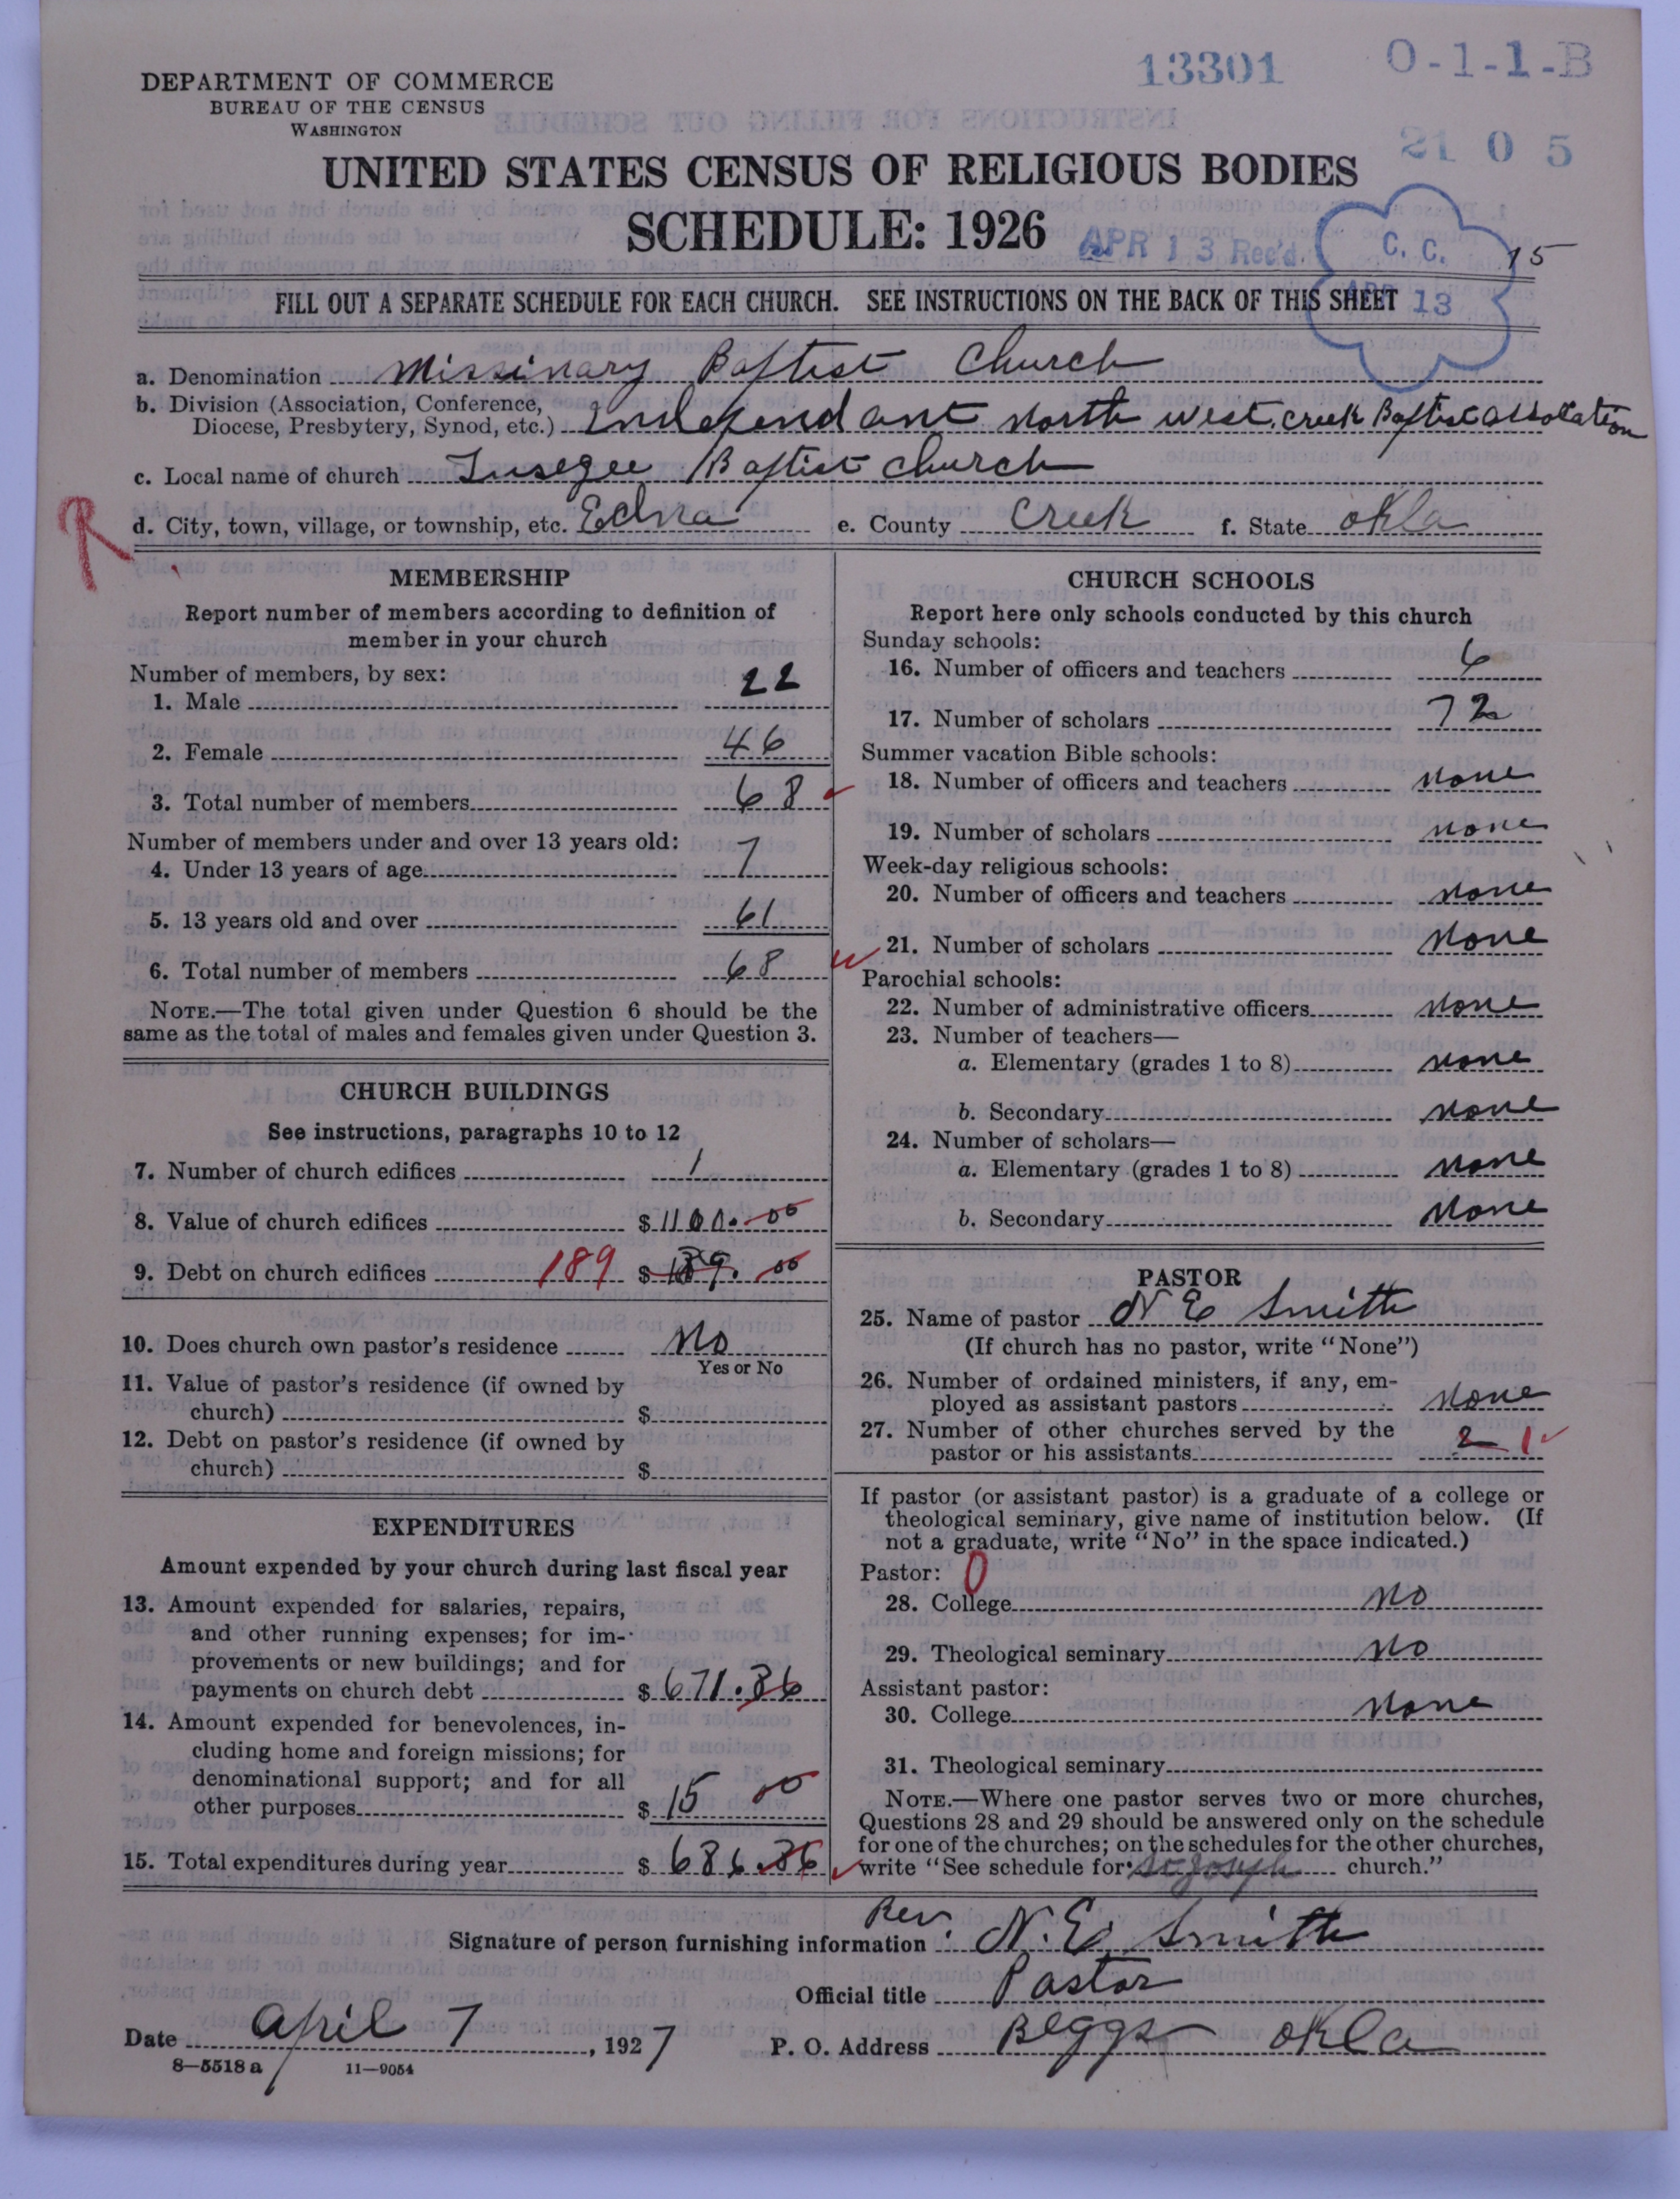 13301 O-1-1-B
DEPARTMENT OF COMMERCE
BUREAU OF THE CENSUS
WASHINGTON
21 0 5
UNITED STATES CENSUS OF RELIGIOUS BODIES
SCHEDULE: 1926
APR 13 Rec'd. C. C. 15
APR 13
FILL OUT A SEPARATE SCHEDULE FOR EACH CHURCH. SEE INSTRUCTIONS ON THE BACK OF THIS SHEET
a. Denomination Missinary Baptist Church
b. Division (Association, Conference,
Diocese, Presbytery, Synod, etc.) Independant North West. Creek Baptist
c. Local name of church Tusegee Baptist Church
R
d. City, town, village, or township, etc. Edna e. County Creek f. State Okla
MEMBERSHIP
Report number of members according to definition of
member in your church
Number of members, by sex:
1. Male 22
2. Female 46
3. Total number of members 68
Number of members under and over 13 years old:
4. Under 13 years of age 7
5. 13 years old and over 61
6. Total number of members 68
NOTE.—The total given under Question 6 should be the
same as the total of males and females given under Question 3.
CHURCH BUILDINGS
See instructions, paragraphs 10 to 12
7. Number of church edifices 1
8. Value of church edifices $ 1100.00
9. Debt on church edifices 189 $ 189.00
10. Does church own pastor's residence No
Yes or No
11. Value of pastor's residence (if owned by
church) $
12. Debt on pastor's residence (if owned by
church) $
EXPENDITURES
Amount expended by your church during last fiscal year
13. Amount expended for salaries, repairs,
and other running expenses; for im-
provements or new buildings; and for
payments on church debt $ 671.86
14. Amount expended for benevolences, in-
cluding home and foreign missions; for
denominational support; and for all
other purposes $ 15 00
15. Total expenditures during year $ 686.86
CHURCH SCHOOLS
Report here only schools conducted by this church
Sunday schools:
16. Number of officers and teachers 6
17. Number of scholars 72
Summer vacation Bible schools:
18. Number of officers and teachers none
19. Number of scholars none
Week-day religious schools:
20. Number of officers and teachers none
21. Number of scholars None
Parochial schools:
22. Number of administrative officers none
23. Number of teachers—
a. Elementary (grades 1 to 8) none
b. Secondary none
24. Number of scholars—
a. Elementary (grades 1 to 8) none
b. Secondary None
PASTOR
25. Name of pastor N E Smith
(If church has no pastor, write "None")
26. Number of ordained ministers, if any, em-
ployed as assistant pastors None
27. Number of other churches served by the
pastor or his assistants 2 1
If pastor (or assistant pastor) is a graduate of a college or
theological seminary, give name of institution below. (If
not a graduate, write "No" in the space indicated.)
Pastor: 0
28. College No
29. Theological seminary No
Assistant pastor:
30. College None
31. Theological seminary
NOTE.—Where one pastor serves two or more churches,
Questions 28 and 29 should be answered only on the schedule
for one of the churches; on the schedules for the other churches,
write "See schedule for St Joseph church."
Rev
Signature of person furnishing information N. E. Smith
Official title Pastor
Date April 7, 1927 P. O. Address Beggs Okla
8—5518 a 11—9054